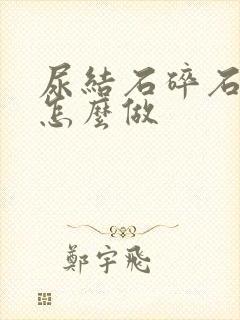 尿結石碎石
怎麼做
鄭宇飛